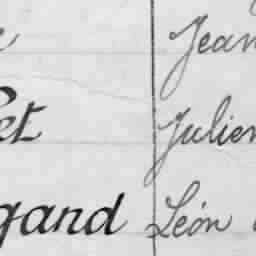 Jean
et Julien
gand Léon